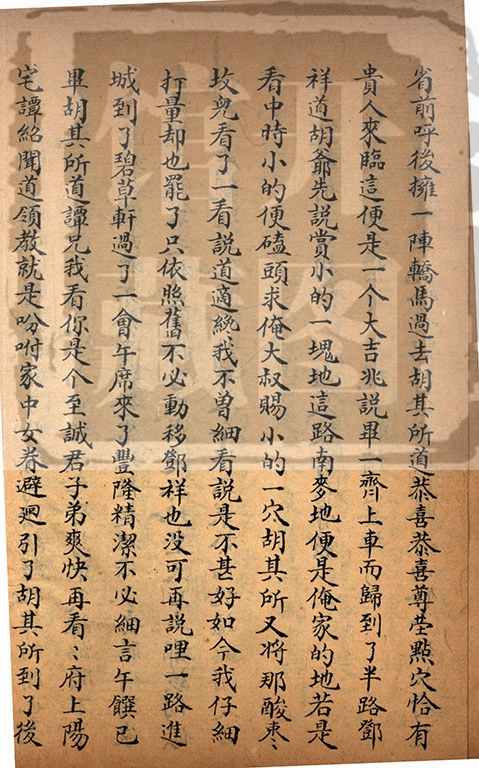 省前呼後擁一陣轎馬過去胡其所道恭喜恭喜尊塋點穴恰有
貴人來臨這便是一个大吉兆說畢一齊上車而歸到了半路鄧
祥道胡爺先說賞小的一塊地這路南麥地便是俺家的地若是
看中時小的便磕頭求俺大叔賜小的一穴胡其所又將那酸棗〻
坟兒看了一看說道適纔我不曽細看說是不甚好如今我仔細
打量却也罷了只依照舊不必動移鄧祥也没可再說哩一路進
城到了碧草軒過了一會午席來了豐隆精潔不必細言午饌已
畢胡其所道譚兄我看你是个至誠君子弟爽快再看〻府上陽
宅譚紹聞道領教就是吩咐家中女眷避廻引了胡其所到了後